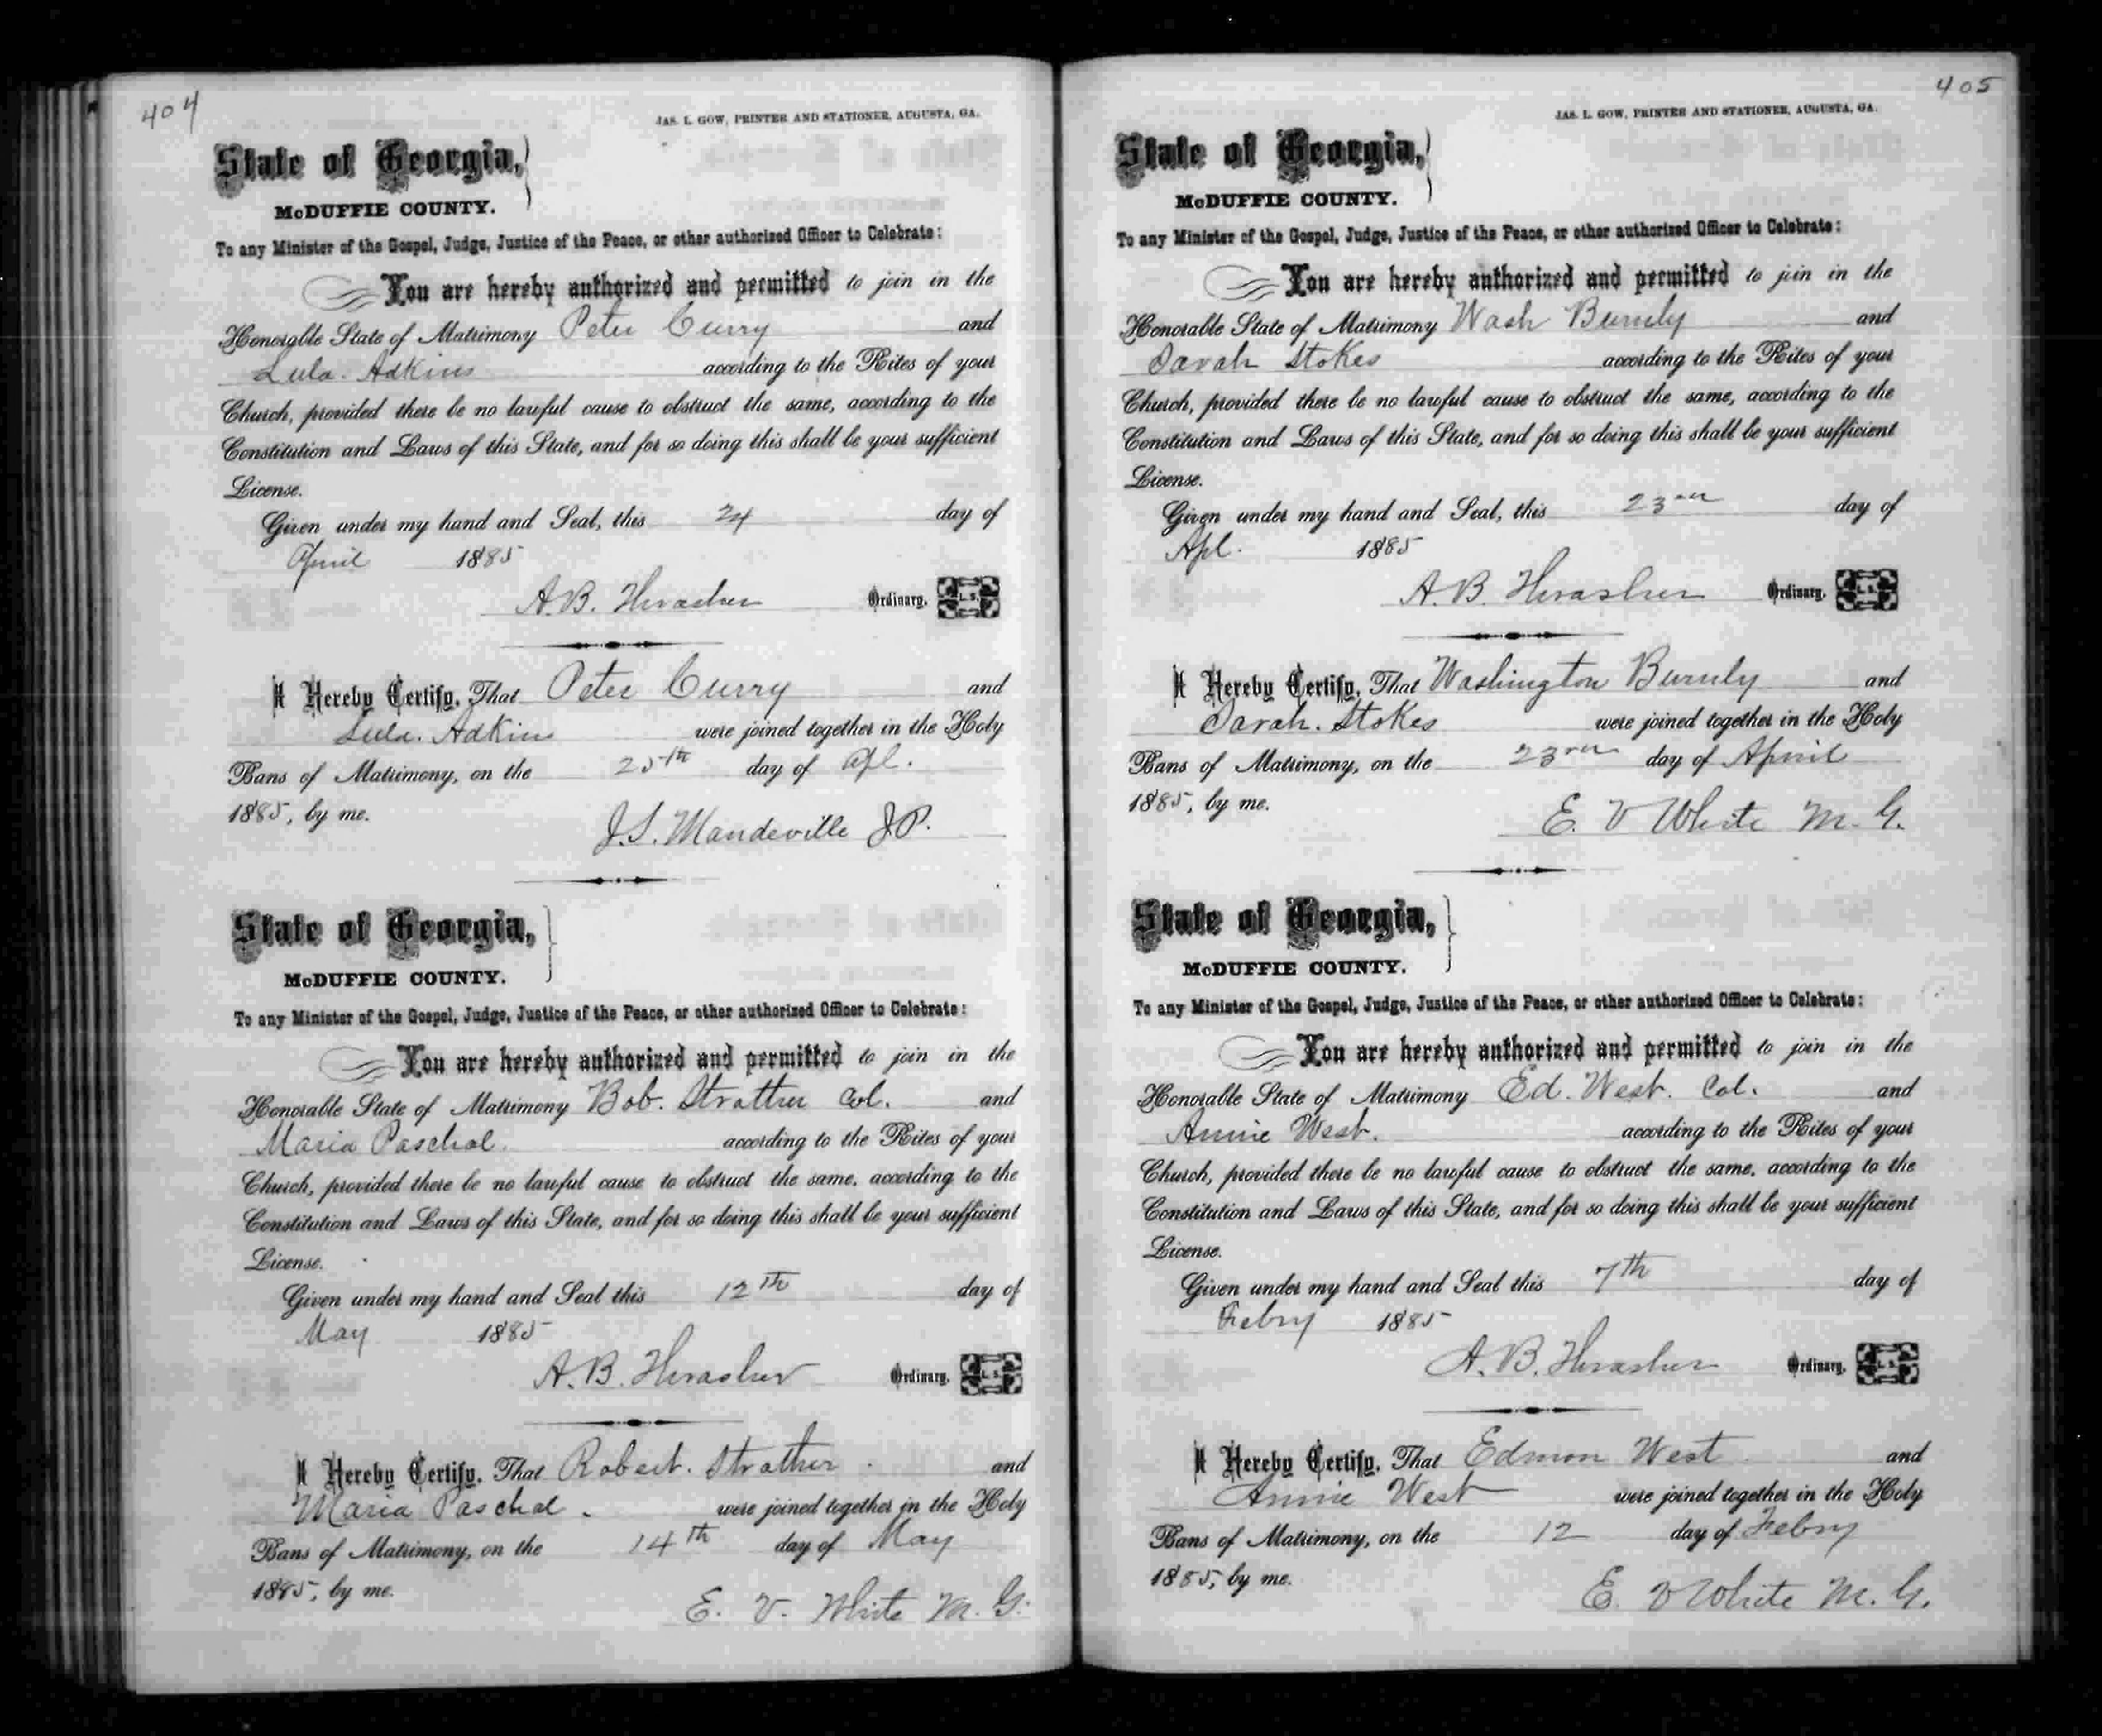 404
JAS. L. GOW, PRINTER AND STATIONER, AUGUSTA, GA.
State of Georgia,
McDUFFIE COUNTY.
To any Minister of the Gospel, Judge, Justice of the Peace, or other authorized Officer to Celebrate:
You are hereby authorized and permitted to join in the
Honorable State of Matrimony Peter Curry and
Lula. Adkins according to the Rites of your
Church, provided there be no lawful cause to obstruct the same, according to the
Constitution and Laws of this State, and for so doing this shall be your sufficient
License.
Given under my hand and Seal, this 24 day of
April 1885
A. B. Thrasher Ordinary, L. S.
I Hereby Certify, That Peter Curry and
Lula. Adkins were joined together in the Holy
Bans of Matrimony, on the 25th day of Apl.
1885, by me.
J. S. Mandeville J.P.
State of Georgia,
McDUFFIE COUNTY.
To any Minister of the Gospel, Judge, Justice of the Peace, or other authorized Officer to Celebrate:
You are hereby authorized and permitted to join in the
Honorable State of Matrimony Bob. Strother Col. and
Maria Paschal. according to the Rites of your
Church, provided there be no lawful cause to obstruct the same, according to the
Constitution and Laws of this State, and for so doing this shall be your sufficient
License.
Given under my hand and Seal this 12th day of
May 1885
A. B. Thrasher Ordinary, L. S.
I Hereby Certify, That Robert. Strother and
Maria Paschal. were joined together in the Holy
Bans of Matrimony, on the 14th day of May
1885, by me.
E. V. White M. G.
405
JAS. L. GOW, PRINTER AND STATIONER, AUGUSTA, GA.
State of Georgia,
McDUFFIE COUNTY.
To any Minister of the Gospel, Judge, Justice of the Peace, or other authorized Officer to Celebrate:
You are hereby authorized and permitted to join in the
Honorable State of Matrimony Wash Burnly and
Sarah Stokes according to the Rites of your
Church, provided there be no lawful cause to obstruct the same, according to the
Constitution and Laws of this State, and for so doing this shall be your sufficient
License.
Given under my hand and Seal, this 23rd day of
Apl. 1885
A. B. Thrasher Ordinary, L. S.
I Hereby Certify, That Washington Burnly and
Sarah. Stokes were joined together in the Holy
Bans of Matrimony, on the 23rd day of April
1885, by me.
E. V White M. G.
State of Georgia,
McDUFFIE COUNTY.
To any Minister of the Gospel, Judge, Justice of the Peace, or other authorized Officer to Celebrate:
You are hereby authorized and permitted to join in the
Honorable State of Matrimony Ed. West. Col. and
Annie West. according to the Rites of your
Church, provided there be no lawful cause to obstruct the same, according to the
Constitution and Laws of this State, and for so doing this shall be your sufficient
License.
Given under my hand and Seal this 7th day of
Febry 1885
A. B. Thrasher Ordinary, L. S.
I Hereby Certify, That Edmon West and
Annie West were joined together in the Holy
Bans of Matrimony, on the 12 day of Febry
1885, by me.
E. V White M. G.